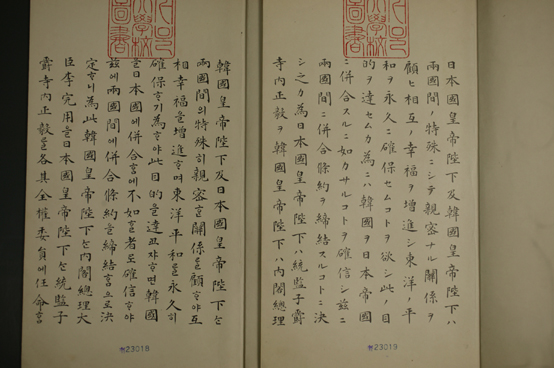 日本國皇帝陛下及韓國皇帝陛下ハ
兩國間ノ特殊ニシテ親密ナル關係ヲ
顧ヒ相互ノ幸福ヲ增進シ東洋ノ平
和ヲ永久ニ確保セムコトヲ欲シ此ノ目
的ヲ達セムカ為ニハ韓國ヲ日本帝國
ニ併合スルニ如カサルコトヲ確信シ茲ニ
兩國間ニ併合條約ヲ締結スルコトニ決
シ之カ為日本國皇帝陛下ハ統監子爵
寺內正毅ヲ韓國皇帝陛下ハ內閣總理
23019
韓國皇帝陛下及日本國皇帝陛下ᄂᆞᆫ
兩國間의特殊히親密ᄒᆞᆫ關係를顧ᄒᆞ야互
相幸福을增進ᄒᆞ며東洋平和를永久히
確保ᄒᆞ기為ᄒᆞ야此目的을達코자ᄒᆞ면韓國
을日本國에併合ᄒᆞᆷ에不如ᄒᆞᆫ者로確信ᄒᆞ야
茲에兩國間에併合條約을締結ᄒᆞᆷ으로決
定ᄒᆞ니為此韓國皇帝陛下ᄂᆞᆫ內閣總理大
臣李完用을日本國皇帝陛下ᄂᆞᆫ統監子
爵寺內正毅를各其全權委員에任命ᄒᆞᆷ
23018